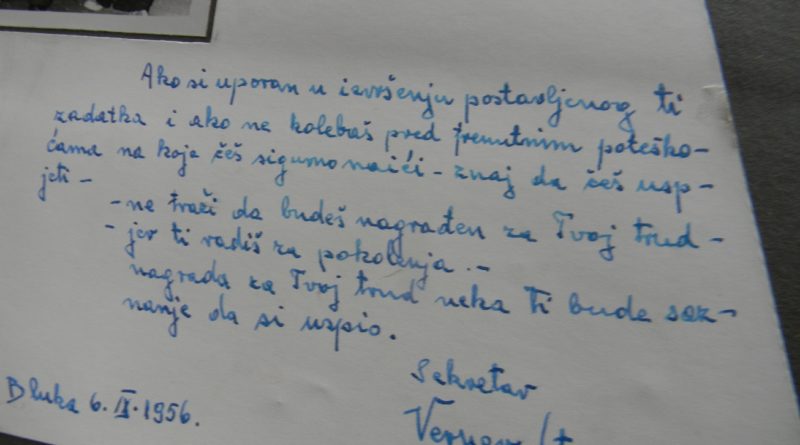 Ako si uporan u izvršenju postavljenog ti
zadatka i ako ne kolebaš pred trenutnim poteško-
ćama na koje češ sigurno naići - znaj da češ usp-
jeti -
- ne traži da budeš nagrađen za Tvoj trud -
- jer ti radiš za pokolenja . -
nagrada za Tvoj trud neka ti bude saz-
nanje da si uspio.
Sekretar
B luka 6. IX. 1956.